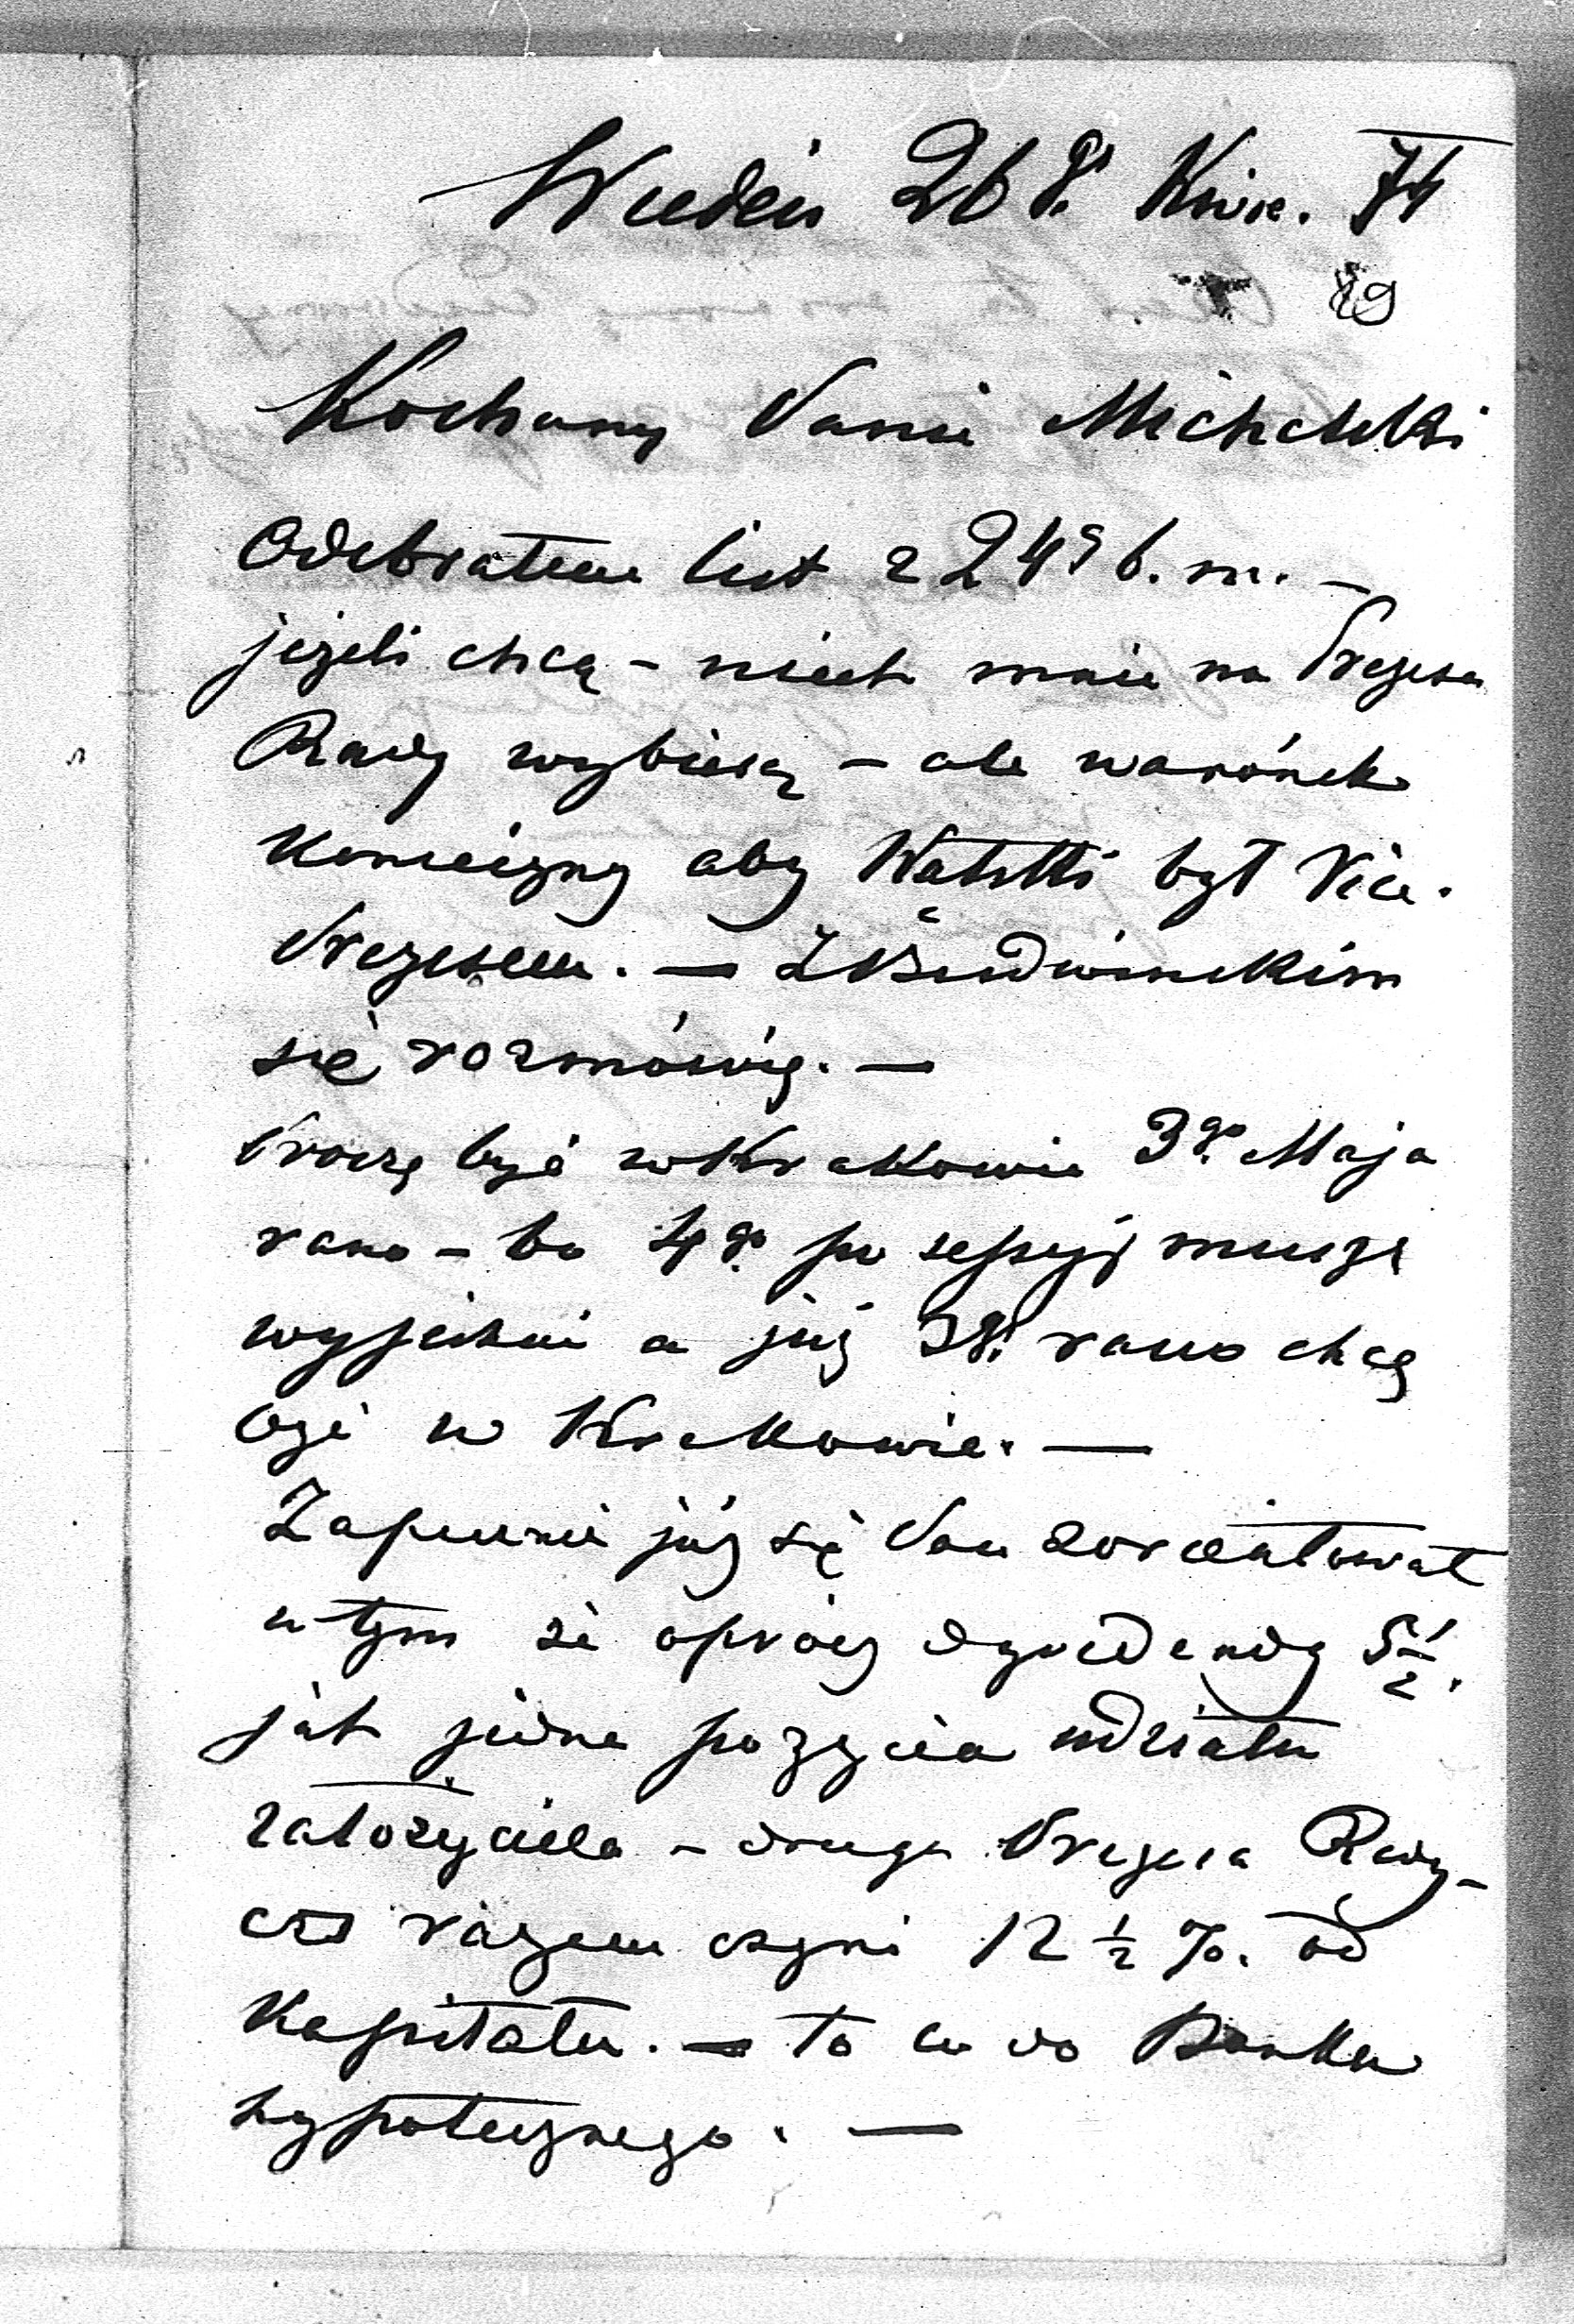 Wiedeń 26 go Kwie. 74
19
Kochany Panie Michalski
Odebrałem list z 24 go b. m. –
jeżeli chcą – niech mnie na Prezesa
Rady wybiorą – ale warónek
konieczny aby był Vice-
Prezesem. –
się rozmówię. –
Proszę być w Krakowie 3go Maja
rano – bo 4go po sessyj muszę
wyjechać a już 3go rano chcę
być w Krakowie. –
Zapewnie już się Pan zorientował
w tym że oprócz dywidendy 5 1/2.
jest jedna pozycia udziału
założyciela – druga Prezesa Rady –
co razem czyni 12 1/2 %. od
Kapitału. – to co do Banku
hypotecznego. –